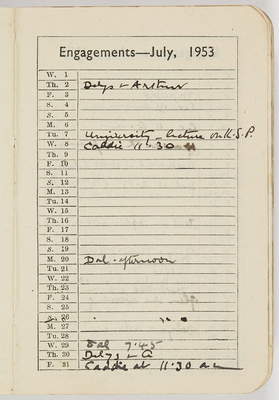 Engagements—July, 1953
W. 1
Th. 2 Delys & Arthur
F. 3
S. 4
S. 5
M. 6
Tu. 7 University - lecture on K.S.P.
W. 8 Caddie 11.30
Th. 9
F. 10
S. 11
S. 12
M. 13
Tu. 14
W. 15
Th. 16
F. 17
S. 18
S. 19
M. 20 Dal - afternoon
Tu. 21
W. 22
Th. 23
F. 24
S. 25
S. 26
M. 27
Tu. 28
W. 29 Dal 7.45
Th. 30 Delys & A
F. 31 Caddie at 11.30 am